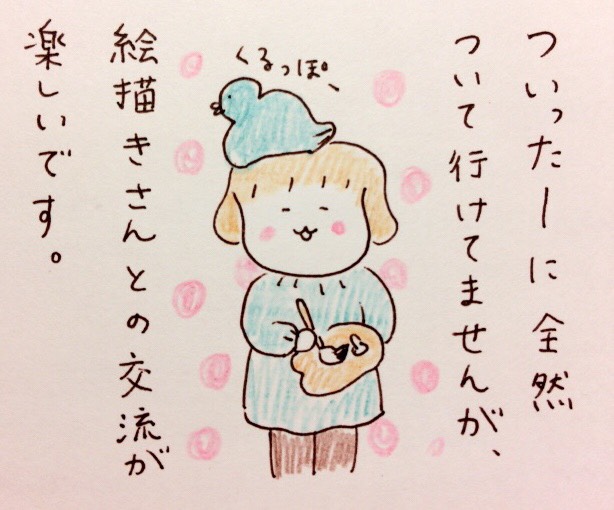 ついったーに全然
ついて行けてませんが、
くるっぽ、
絵描きさんとの交流が
楽しいです。